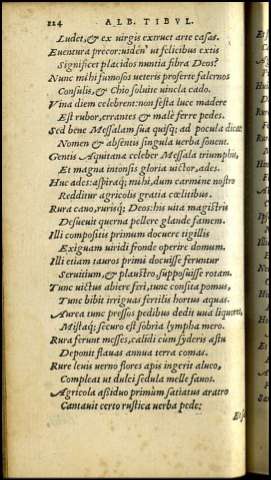 224 ALB. TIBVL.
Ludet, & ex uirgis extruct arte casas.
Euentura precor: uidén' ut felicibus extis
Significet placidos nuntia fibra Deos?
Nunc mihi fumosos ueteris proferte falernos
Consulis, & Chio soluite uincla cado.
Vina diem celebrent: non festa luce madere
Est rubor, errantes & malè ferre pedes.
Sed bene Messalam sua quisq; ad pocula dicat
Nomen & absentis singula uerba sonent.
Gentis Aquitanæ celeber Messala triumphis,
Et magna intonsis gloria uictor, ades.
Huc ades: aspiraq; mihi, dum carmine nostro
Redditur agricolis gratia cœlitibus.
Rura cano, rurisq; Deos: his uita magistris
Desueuit querna pellere glande famem.
Illi compositis primum docuere tigillis
Exiguam uiridi fronde operire domum.
Illi etiam tauros primi docuisse feruntur
Seruitium, & plaustro, supposuisse rotam.
Tunc uictus abiere feri, tunc consita pomus,
Tunc bibit irriguas fertilis hortus aquas.
Aurea tunc pressos pedibus dedit uua liquores,
Mistaq; securo est sobria lympha mero.
Rura ferunt messes, calidi cùm syderis æstu
Deponit flauas annua terra comas.
Rure leuis uerno flores apis ingerit alueo,
Compleat ut dulci sedula melle fauos.
Agricola assiduo primùm satiatus aratro
Cantauit certo rustica uerba pede: